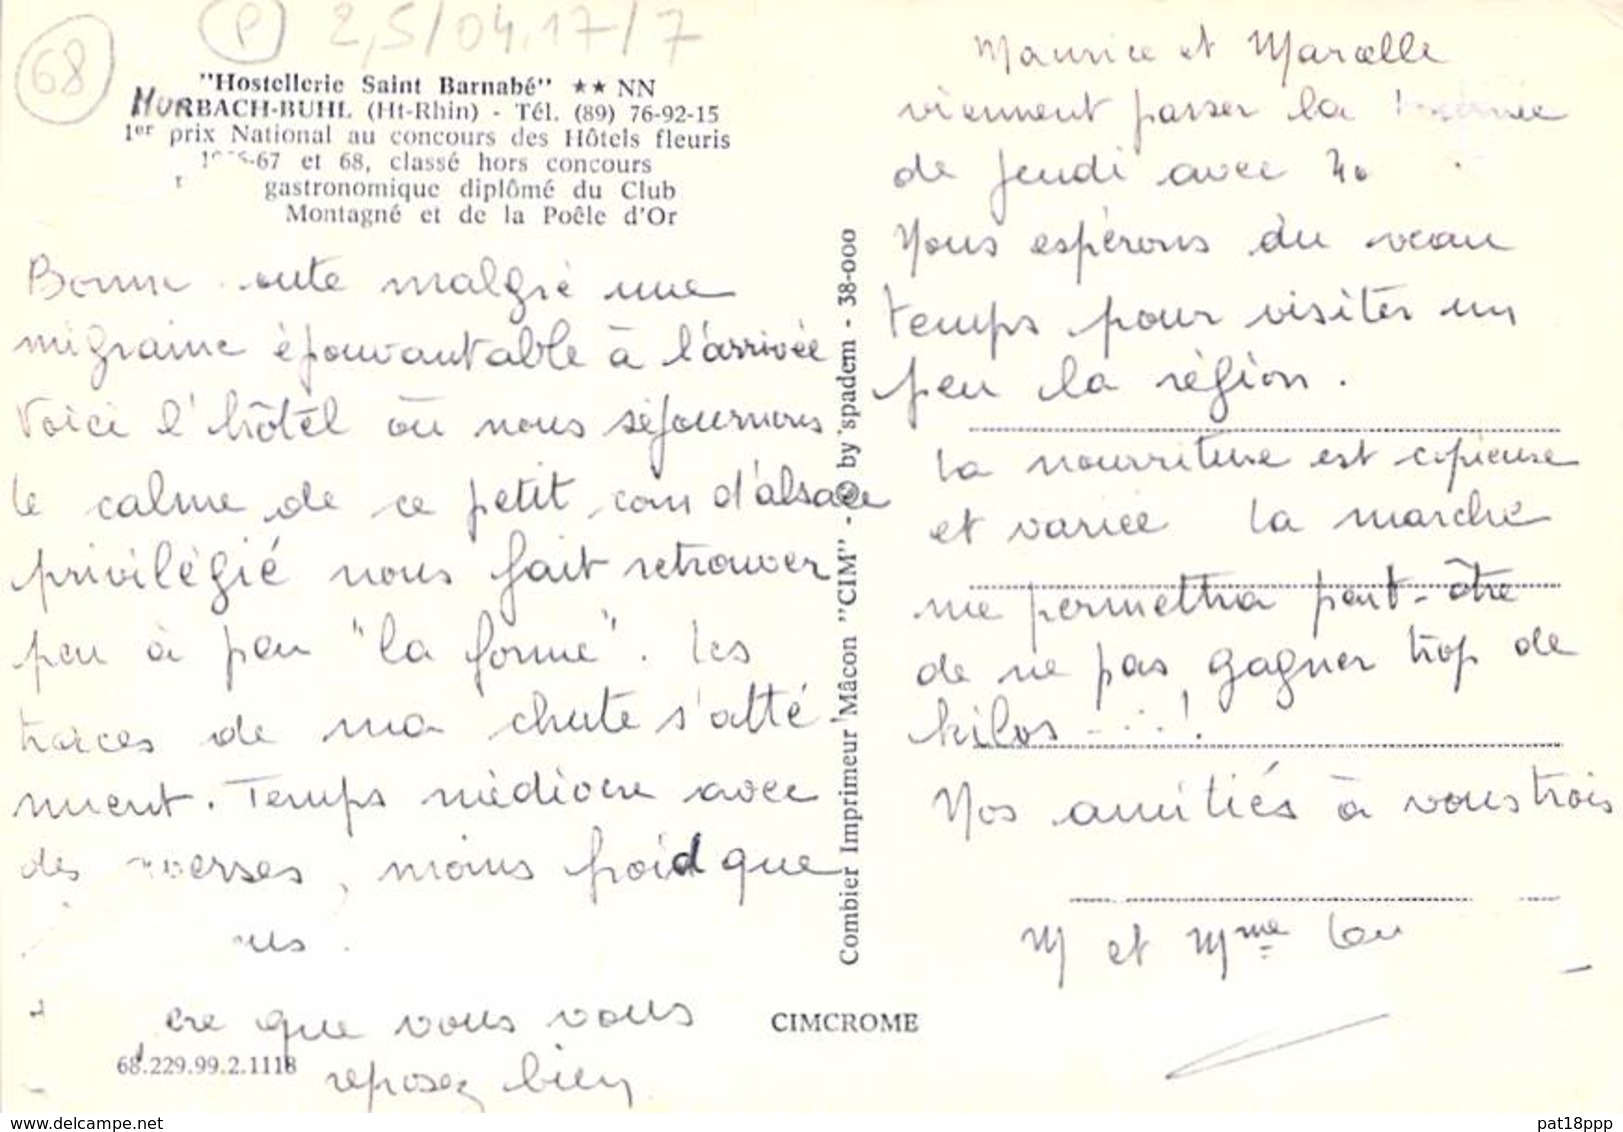 68
P 2,5/04.17/7
"Hostellerie Saint Barnabé" ★★ NN
MURBACH-BUHL (Ht-Rhin) - Tél. (89) 76-92-15
1er prix National au concours des Hôtels fleuris
-67 et 68, classé hors concours
gastronomique diplômé du Club
Montagné et de la Poêle d'Or
Bonne malgré une
migraine épouvantable à l'arrivée
Voici l'hôtel où nous séjournons
le calme de ce petit coin d'alsace
privilégié nous fait retrouver
peu à peu "la forme". Les
traces de ma chute s'atté
nuent. Temps médiocre avec
des averses, moins froid que
que vous vous
reposez bien
68.229.99.2.1118
Combier Imprimeur Mâcon "CIM" - © by spadem - 38-000
CIMCROME
Maurice et Marcelle
viennent passer la
de jeudi avec
Nous espérons du beau
temps pour visiter un
peu la région.
La nourriture est copieuse
et variée La marche
me permettra peut-être
de ne pas gagner trop de
kilos ....!
Nos amitiés à vous trois
M et Mme
pat18ppp